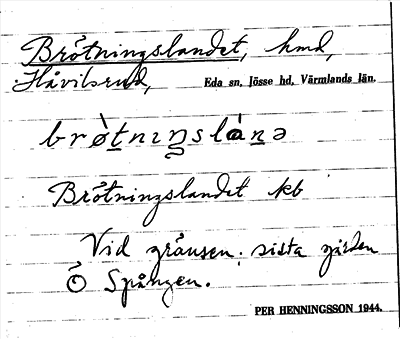 Brötningslandet, hmd,
Håvilsrud, Eda sn, Jösse hd, Värmlands län.
brø̀tnıŋslánə
Brötningslandet kb
Vid gränsen; sista gården
Ö Spången.
PER HENNINGSSON 1944.